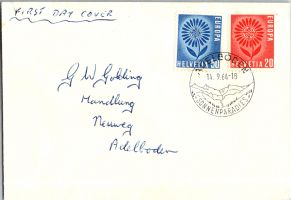 FIRST DAY COVER
EUROPA
50
HELVETIA
EUROPA
HELVETIA 20
14.9.64-18
SONNENPARADIES
G W Golding
Handlung
Neuweg
Adelboden